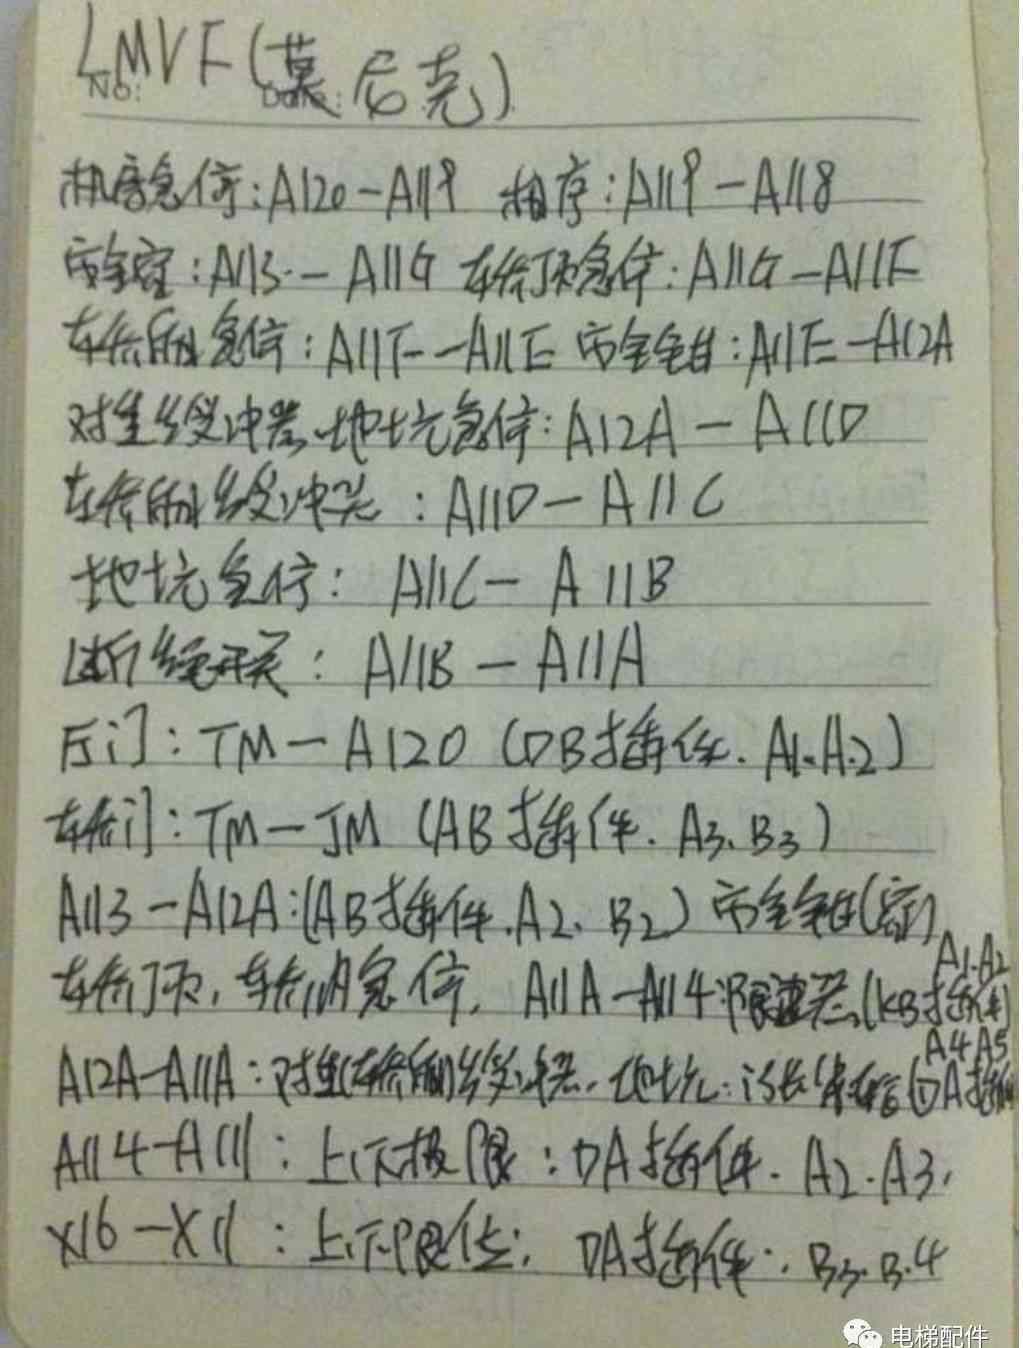 LMVF(莫尼克)
No: Date:
机房急停:A120-A119 相序:A119-A118
安全窗:A113-A11G 轿顶急停:A11G-A11F
轿厢急停:A11F-A11E 安全钳:A11E-A12A
对重缓冲器、地坑急停:A12A-A11D
轿厢缓冲器:A11D-A11C
地坑急停:A11C-A11B
断绳开关:A11B-A11A
厅门:TM-A120(DB插件.A1.A.2)
轿门:TM-JM(AB插件.A3.B3)
A113-A12A:(AB插件.A2.B2)安全钳(窗)
轿顶,轿内急停,A11A-A114:限速器(KB插件 A1.A2
A12A-A11A:对重轿厢缓冲器.地坑: (DA插件 A4 A5
A114-A111:上下极限:DA插件.A2.A3.
X16-X11:上下限位;DA插件:.B3.B.4
电梯配件